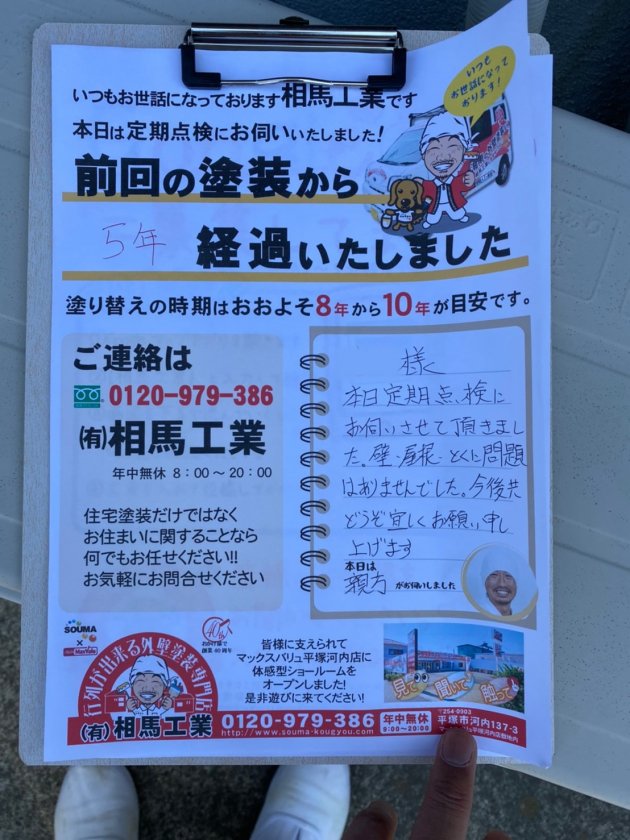 いつもお世話になっております相馬工業です
いつも
お世話になって
おります!
本日は定期点検にお伺いいたしました!
前回の塗装から
5年 経過いたしました
塗り替えの時期はおおよそ8年から10年が目安です。
ご連絡は
0120-979-386
(有)相馬工業
年中無休 8:00〜20:00
住宅塗装だけではなく
お住まいに関することなら
何でもお任せください!!
お気軽にお問合せください
様
本日定期点検に
お伺いさせて頂きまし
た。壁・屋根・とくに問題
はありませんでした。今後共
どうぞ宜しくお願い申し
上げます
本日は
親方がお伺いしました
SOUMA
×
MaxValu
40th
おかげ様で
創業40周年
皆様に支えられて
マックスバリュ平塚河内店に
体感型ショールームを
オープンしました!
是非遊びに来てください!
見て 聞いて 触って
行列が出来る外壁塗装専門店
(有)相馬工業
0120-979-386
http://www.souma-kougyou.com
年中無休
9:00〜20:00
〒254-0903
平塚市河内137-3
マックスバリュ平塚河内店敷地内